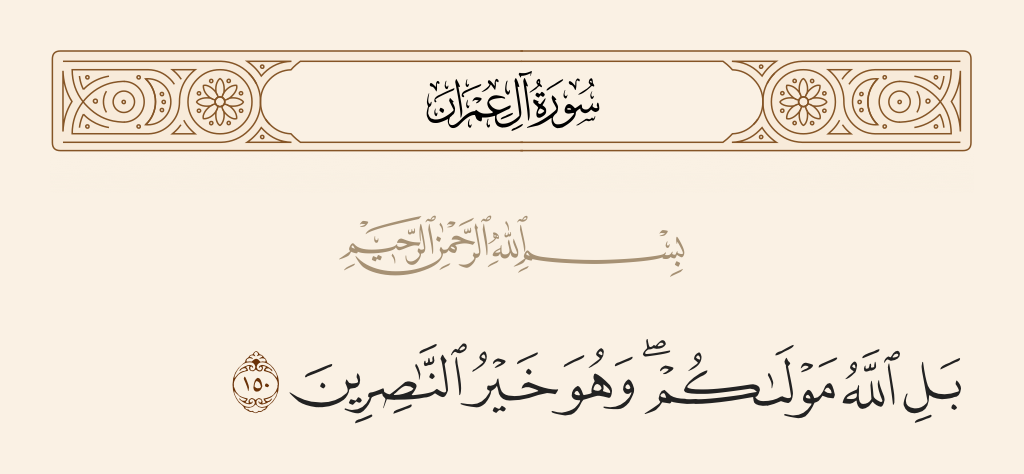 سُورَةُ آلِ عِمْرَان
بِسْمِ ٱللَّهِ ٱلرَّحْمَٰنِ ٱلرَّحِيمِ
بَلِ ٱللَّهُ مَوْلَىٰكُمْ ۖ وَهُوَ خَيْرُ ٱلنَّٰصِرِينَ ١٥٠